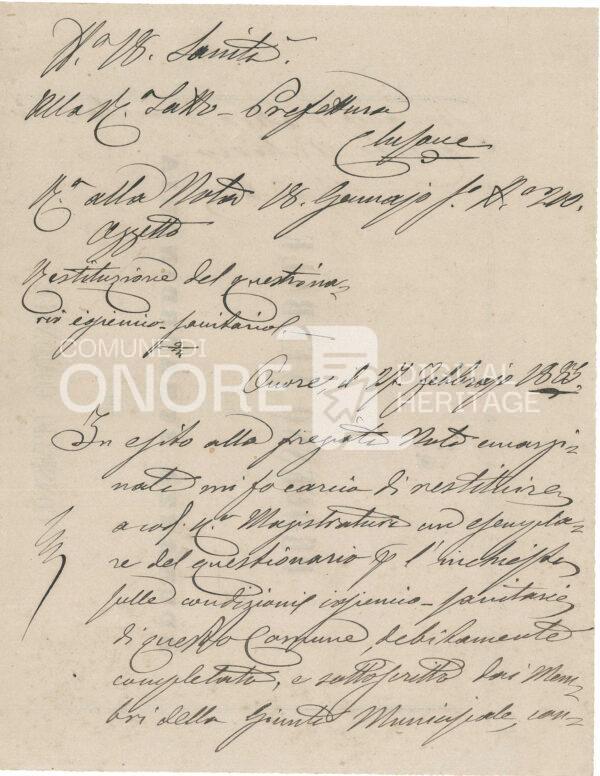 N.° 18. Sanità.
Alla R. Sotto-Prefettura
Clusone
R.ta alla Nota 18. Gennajo N.° 210.
Oggetto
Restituzione del questiona-
rio igienico-sanitario.
COMUNE DI
ONORE
DIGITAL
HERITAGE
Onore, il 27. febbrajo 1886.
In esito alla pregiata Nota emargi-
nata mi fo carico di restituire
a cod. R.a Magistratura un esempla-
re del questionario p. l'inchiesta
sulle condizioni igienico-sanitarie
di questo Comune, debitamente
completato, e sottoscritto dai Mem-
bri della Giunta Municipale, con-